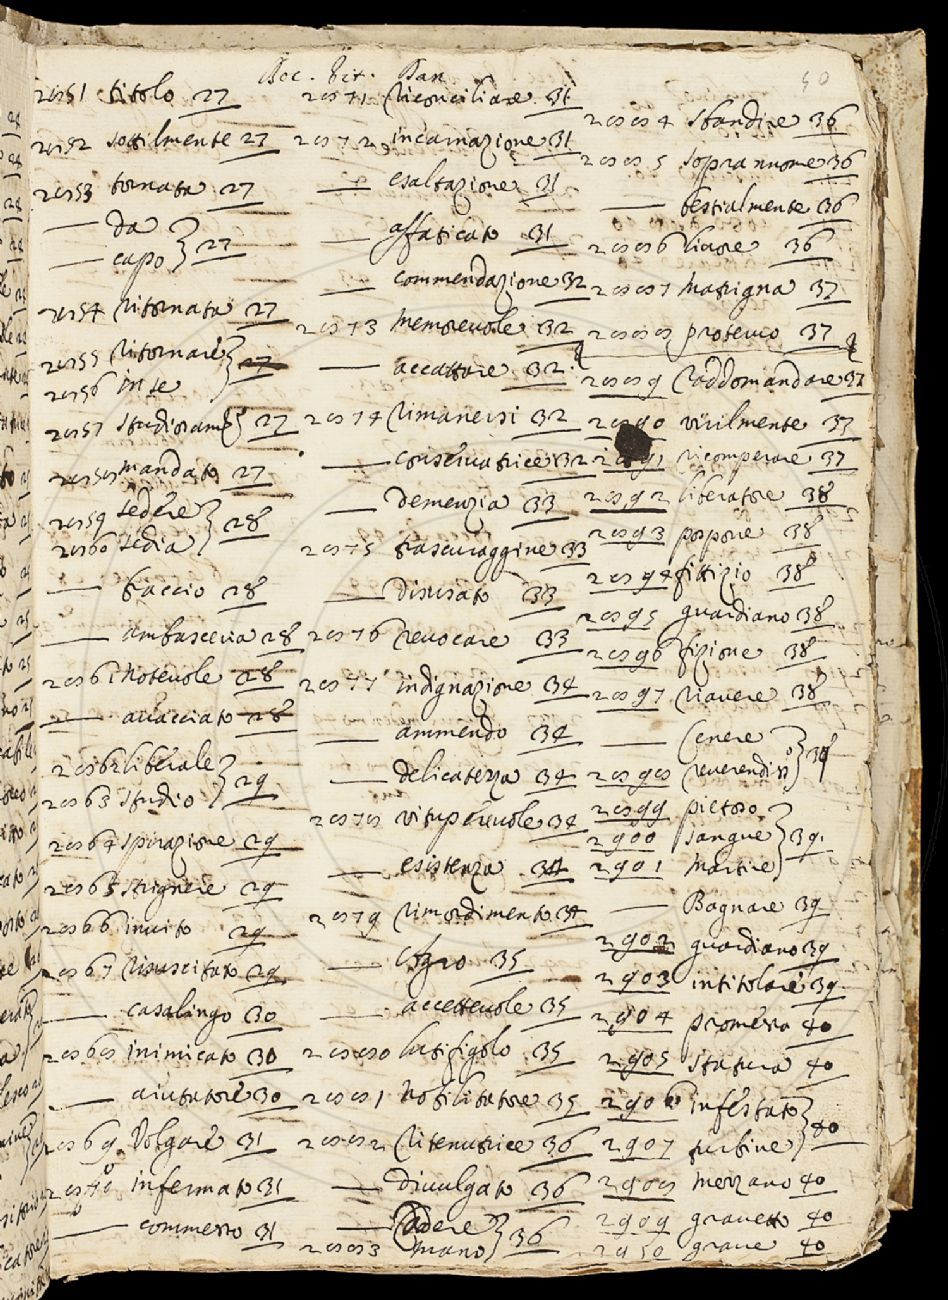 Boc. Vit. Dan
50
2851 titolo 27
2852 sottilmente 27
2853 tornata 27
— da
— capo } 27
2854 Ritornata 27
2855 Ritornare
2856 in se } 27
2857 27
2858 mandato 27
2859 sedere
2860 sedia } 28
— braccio 28
— ambasceria 28
2861 Notevole 28
— avacciato 28
2862 liberale
2863 studio } 29
2864 spirazione 29
2865 strignere 29
2866 invito 29
2867 Risuscitato 29
— casalingo 30
2868 inimicato 30
— aiutatore 30
2869 Volgare 31
2870 infermato 31
— commesso 31
2871 Riconciliare 31
2872 incarnazione 31
— esaltazione 31
— affaticato 31
— commendazione 32
2873 Memorevole 32
— accattare 32
2874 Rimanersi 32
— conservatrice 32
— Demenzia 33
2875 trascuraggine 33
— Disusato 33
2876 revocare 33
2877 indignazione 34
— ammendo 34
— delicatezza 34
2878 vituperevole 34
— esistenza 34
2879 Rimordimento 34
— 35
— accettevole 35
2880 35
2881 Nobilitatore 35
2882 Ritenitrice 36
— divulgato 36
— Cadere
2883 mano } 36
2884 sbandire 36
2885 sopra nnome 36
— bestialmente 36
2886 livore 36
2887 Matrigna 37
2888 protervo 37
2889 Raddomandare 37
2890 virilmente 37
2891 ricomperare 37
2892 liberatore 38
2893 porpore 38
2894 fittizio 38
2895 guardiano 38
2896 fizione 38
2897 riavere 38
— Cenere
2898 reverendiss.o } 38
2899 pietoso
2900 sangue
2901 Martire } 39
— Bagnare 39
2902 guardiano 39
2903 intitolare 39
2904 promessa 40
2905 statura 40
2906 infestato
2907 turbine } 40
2908 mezzano 40
2909 gravetto 40
2910 grave 40